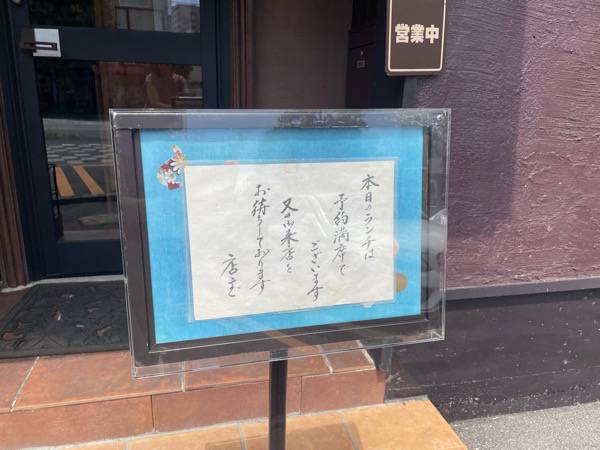 営業中
本日のランチは
予約満席で
ございます
又の御来店を
お待ちしております
店主